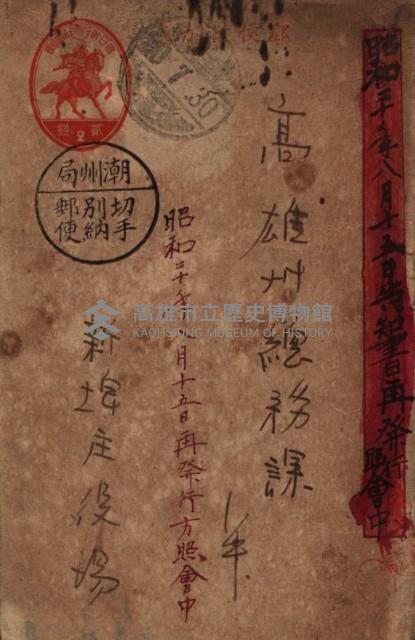 昭和二十年八月十五日
再発行
照會中
高雄州總務課
昭和二十年八月十五日再発行方照會中
新埤庄役場
潮州局
切手
別納
郵便
7
30
貳
2
錢
高雄市立歷史博物館
KAOHSIUNG MUSEUM OF HISTORY